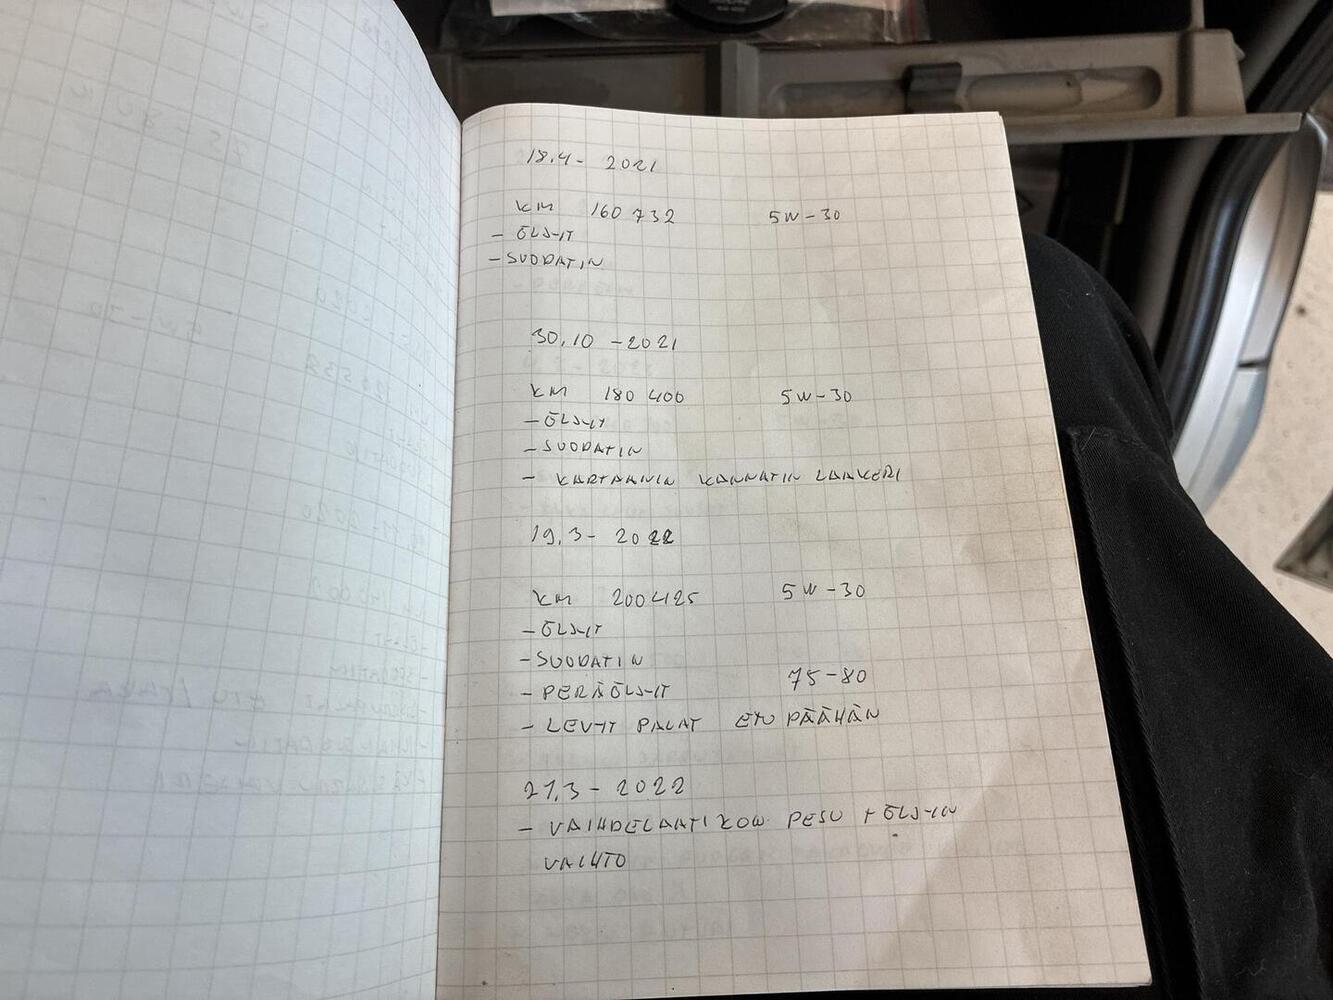 18.4 - 2021
KM 160 732 5W-30
- ÖLJYT
- SUODATIN
30.10 - 2021
KM 180 400 5W-30
- ÖLJYT
- SUODATIN
- KARTAANIN KANNATIN LAAKERI
19.3 - 2022
KM 200425 5W-30
- ÖLJYT
- SUODATIN
- PERÄÖLJYT 75-80
- LEVYT PALAT ETU PÄÄHÄN
21.3 - 2022
- VAIHDELAATIKON PESU + ÖLJYIN
VAIHTO